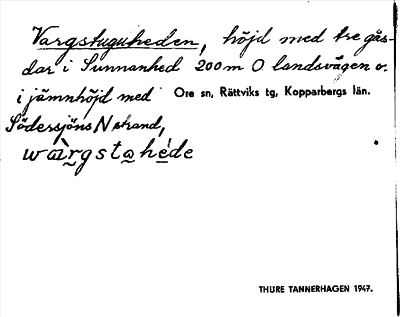 Vargstuguheden, höjd med tre går-
dar i Sunnanhed 200 m O landsvägen o.
i jämnhöjd med Ore sn, Rättviks tg, Kopparbergs län.
Södersjöns N strand,
wàrgstahéde
THURE TANNERHAGEN 1947.